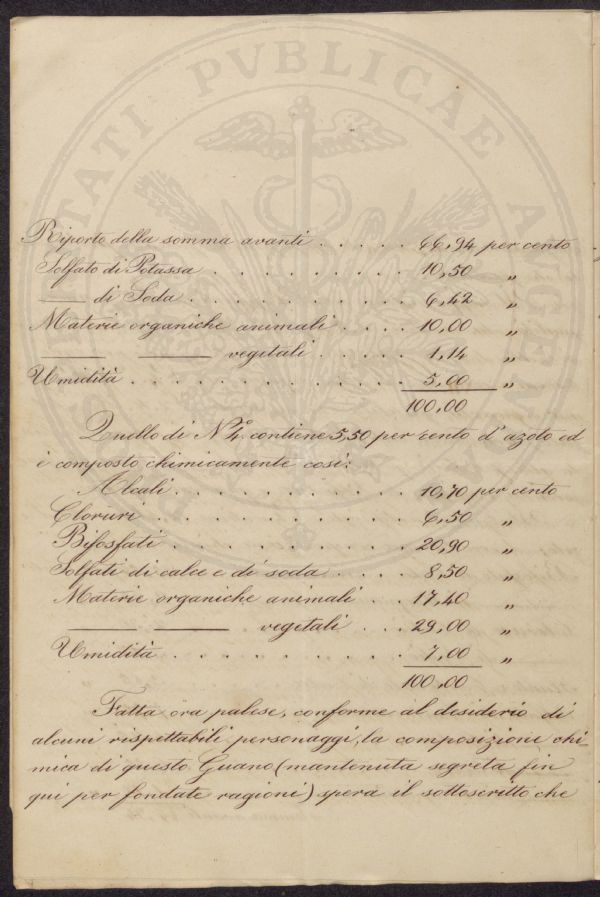 PVBLICAE
Riporto della somma avanti . . . . . 66,94 per cento
Solfato di Potassa . . . . . . . . . 10,50 "
—— di Soda . . . . . . . . . . 6,42 "
Materie organiche animali . . . . 10,00 "
—— —— vegetali . . . . . 1,14 "
Umidità . . . . . . . . . . . . . 5,00 "
100,00
Quello di N.º 4. contiene 5,50 per cento d'azoto ed
è composto chimicamente così:
Alcali . . . . . . . . . . . 10,70 per cento
Cloruri . . . . . . . . . . . 6,50 "
Bifosfati . . . . . . . . . . 20,90 "
Solfati di calce e di soda . . . . 8,50 "
Materie organiche animali . . . 17,40 "
—— —— vegetali . . . 29,00 "
Umidità . . . . . . . . . . 7,00 "
100,00
Fatta ora palese, conforme al desiderio di
alcuni rispettabili personaggi, la composizione chi-
mica di questo Guano (mantenuta segreta fin
qui per fondate ragioni) spera il sottoscritto che